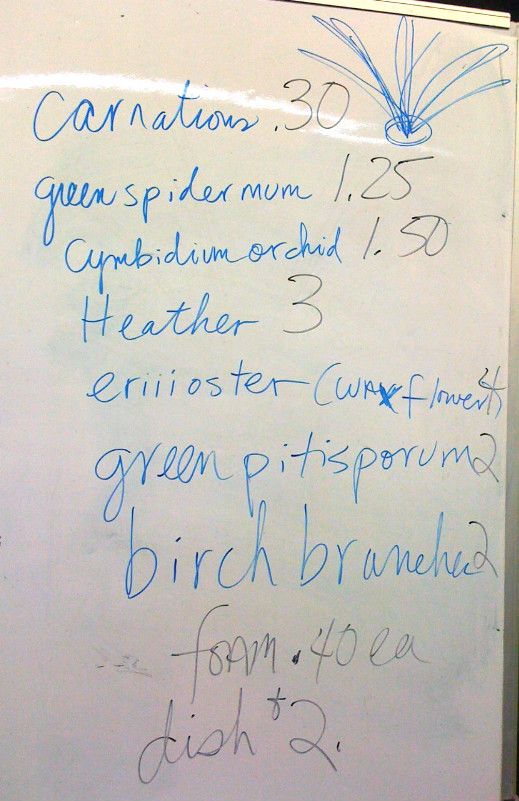 Carnations .30
green spider mum 1.25
Cymbidium orchid 1.50
Heather 3
eriiioster (WAX flower) 4
green pitisporum 2
birch branches 2
foam .40 ea
dish $2.